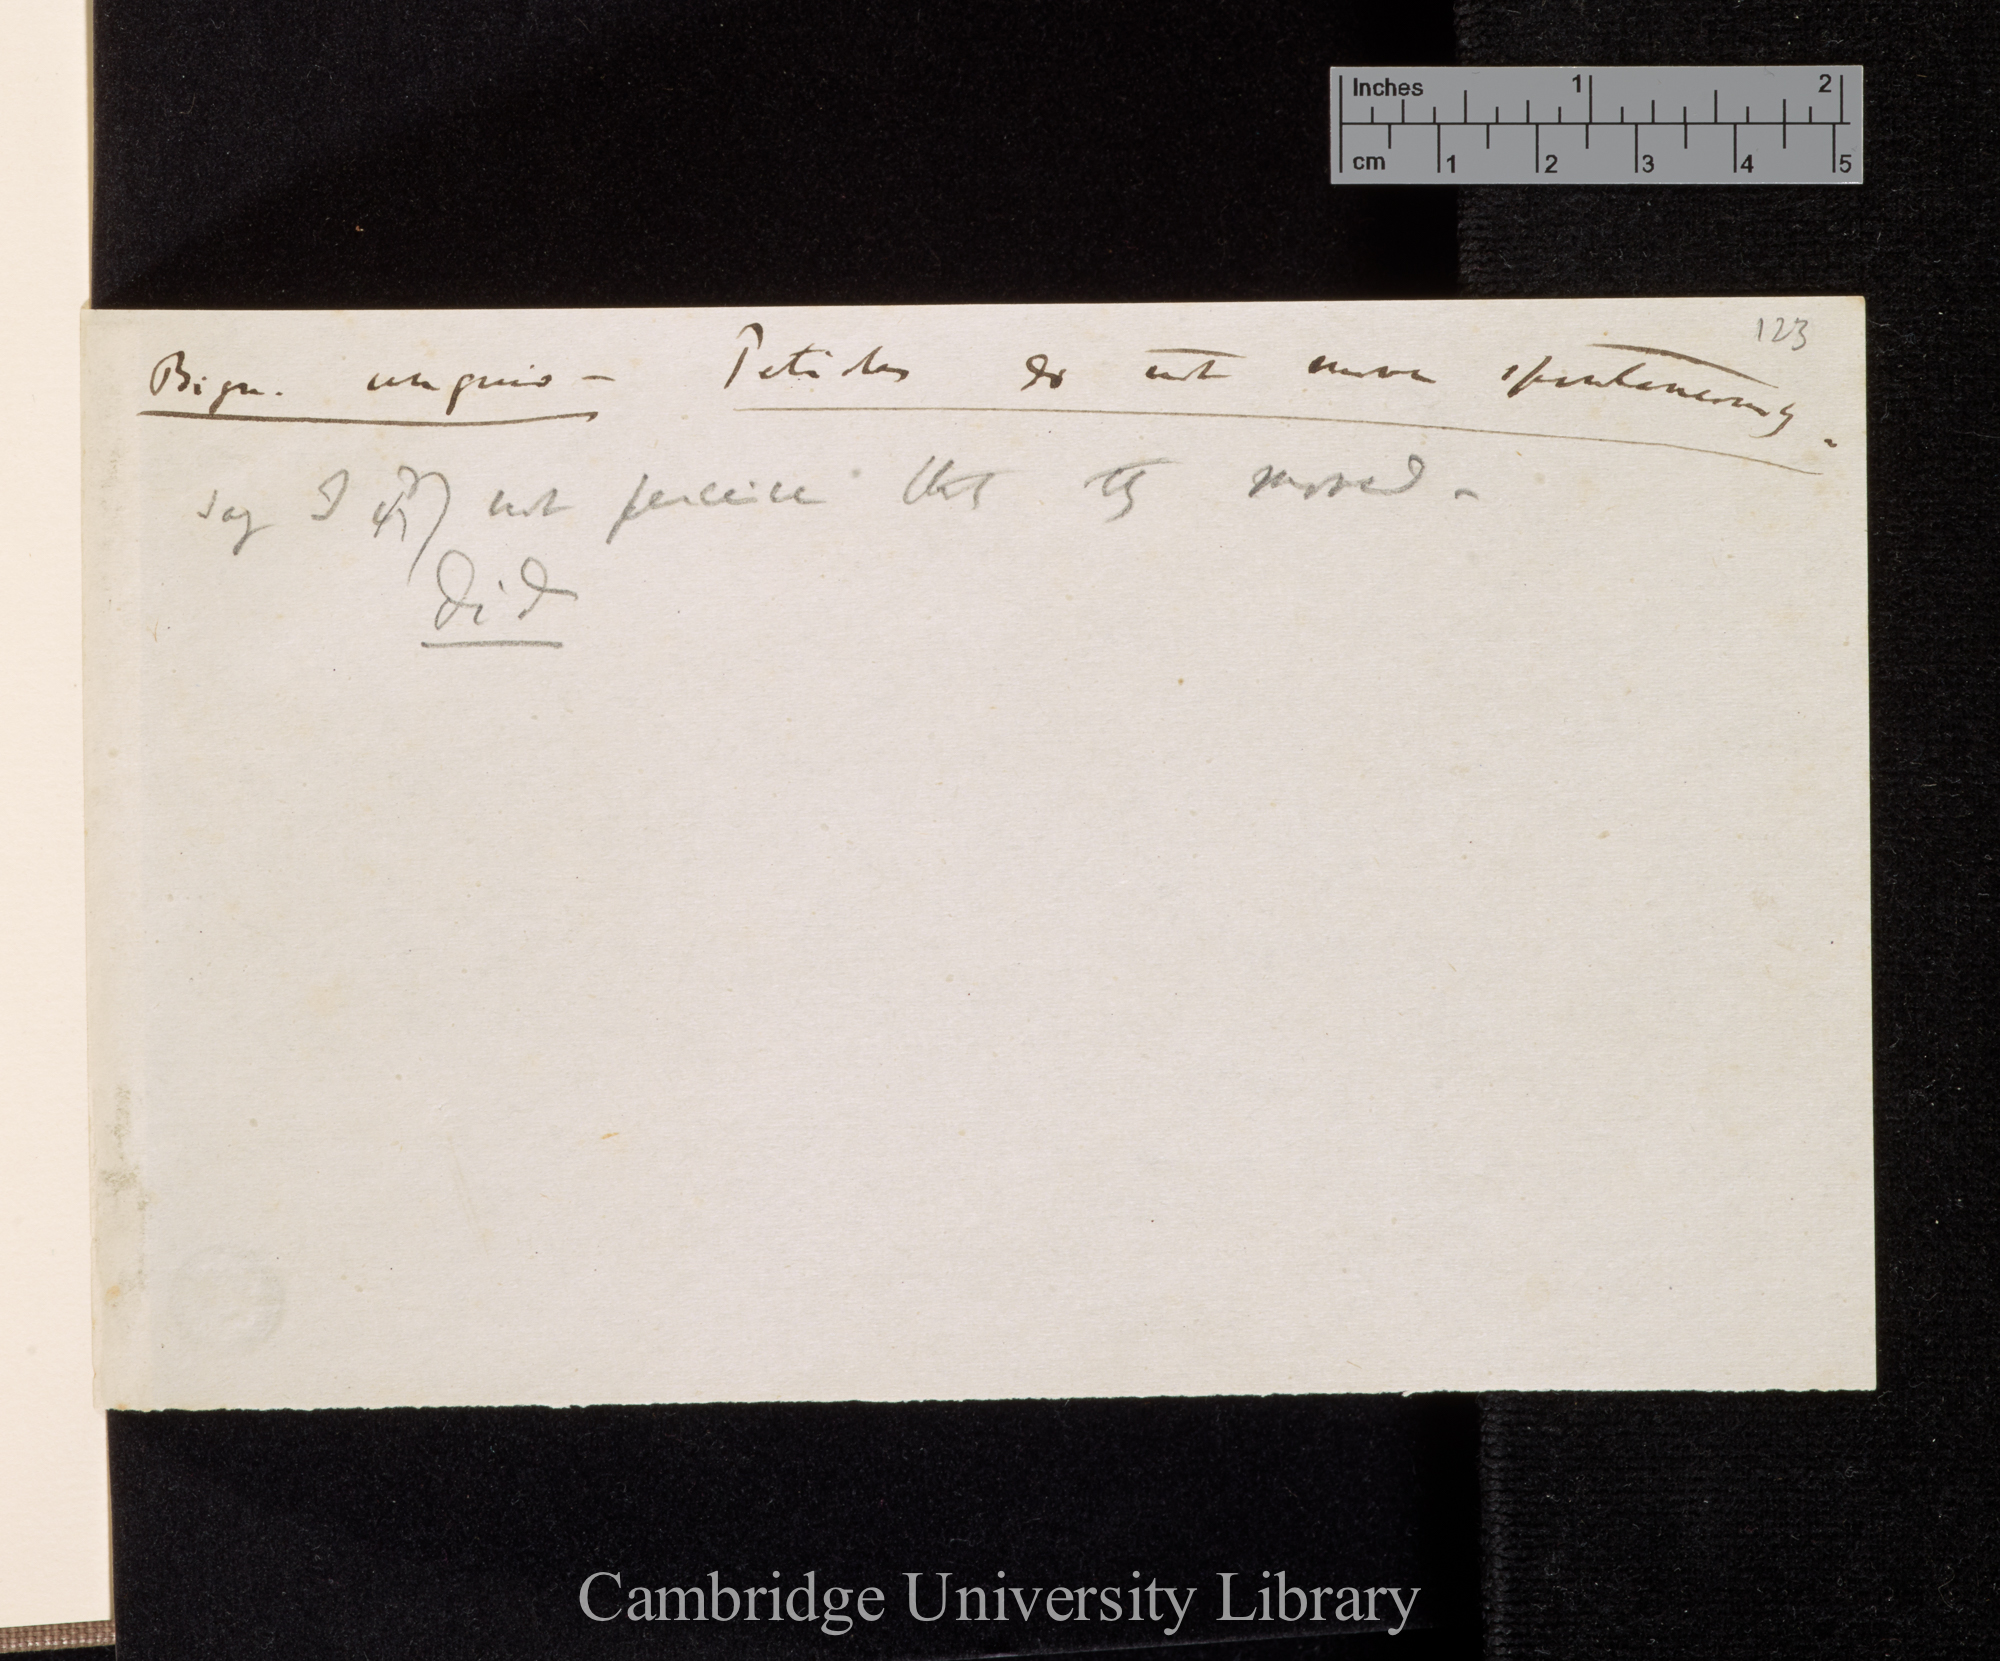 Inches 1 2
cm 1 2 3 4 5
123
Bign. unguis – Petioles do not move spontaneously.
say I not perceive that they moved –
Did
Cambridge University Library